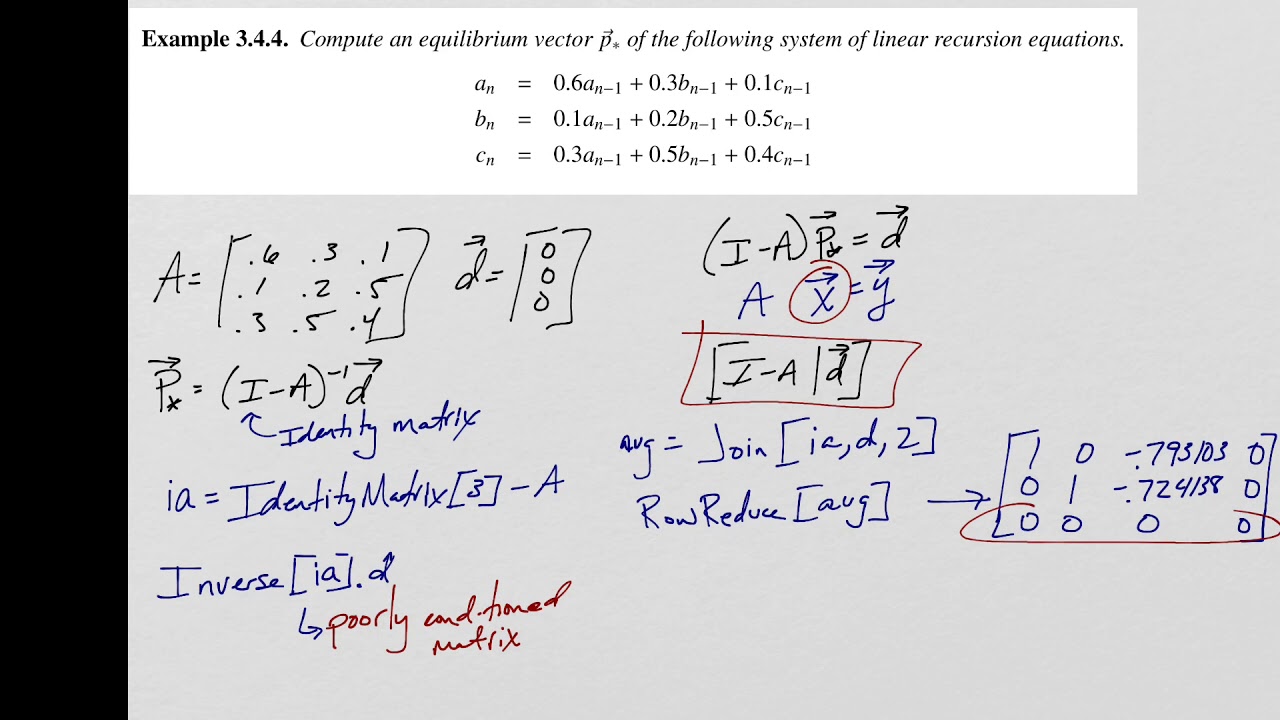 Example 3.4.4. Compute an equilibrium vector p⃗* of the following system of linear recursion equations.
aₙ = 0.6aₙ₋₁ + 0.3bₙ₋₁ + 0.1cₙ₋₁
bₙ = 0.1aₙ₋₁ + 0.2bₙ₋₁ + 0.5cₙ₋₁
cₙ = 0.3aₙ₋₁ + 0.5bₙ₋₁ + 0.4cₙ₋₁
A = [.6 .3 .1
.1 .2 .5
.3 .5 .4]
d⃗ = [0
0
0]
P⃗* = (I-A)⁻¹ d⃗
Identity matrix
ia = IdentityMatrix[3] - A
Inverse[ia].d
↳ poorly conditioned
matrix
(I-A) P⃗* = d⃗
A x⃗ = y⃗
[I-A | d⃗]
aug = Join[ia, d, 2]
RowReduce[aug] →
[1 0 -.793103 0
0 1 -.724138 0
0 0 0 0]